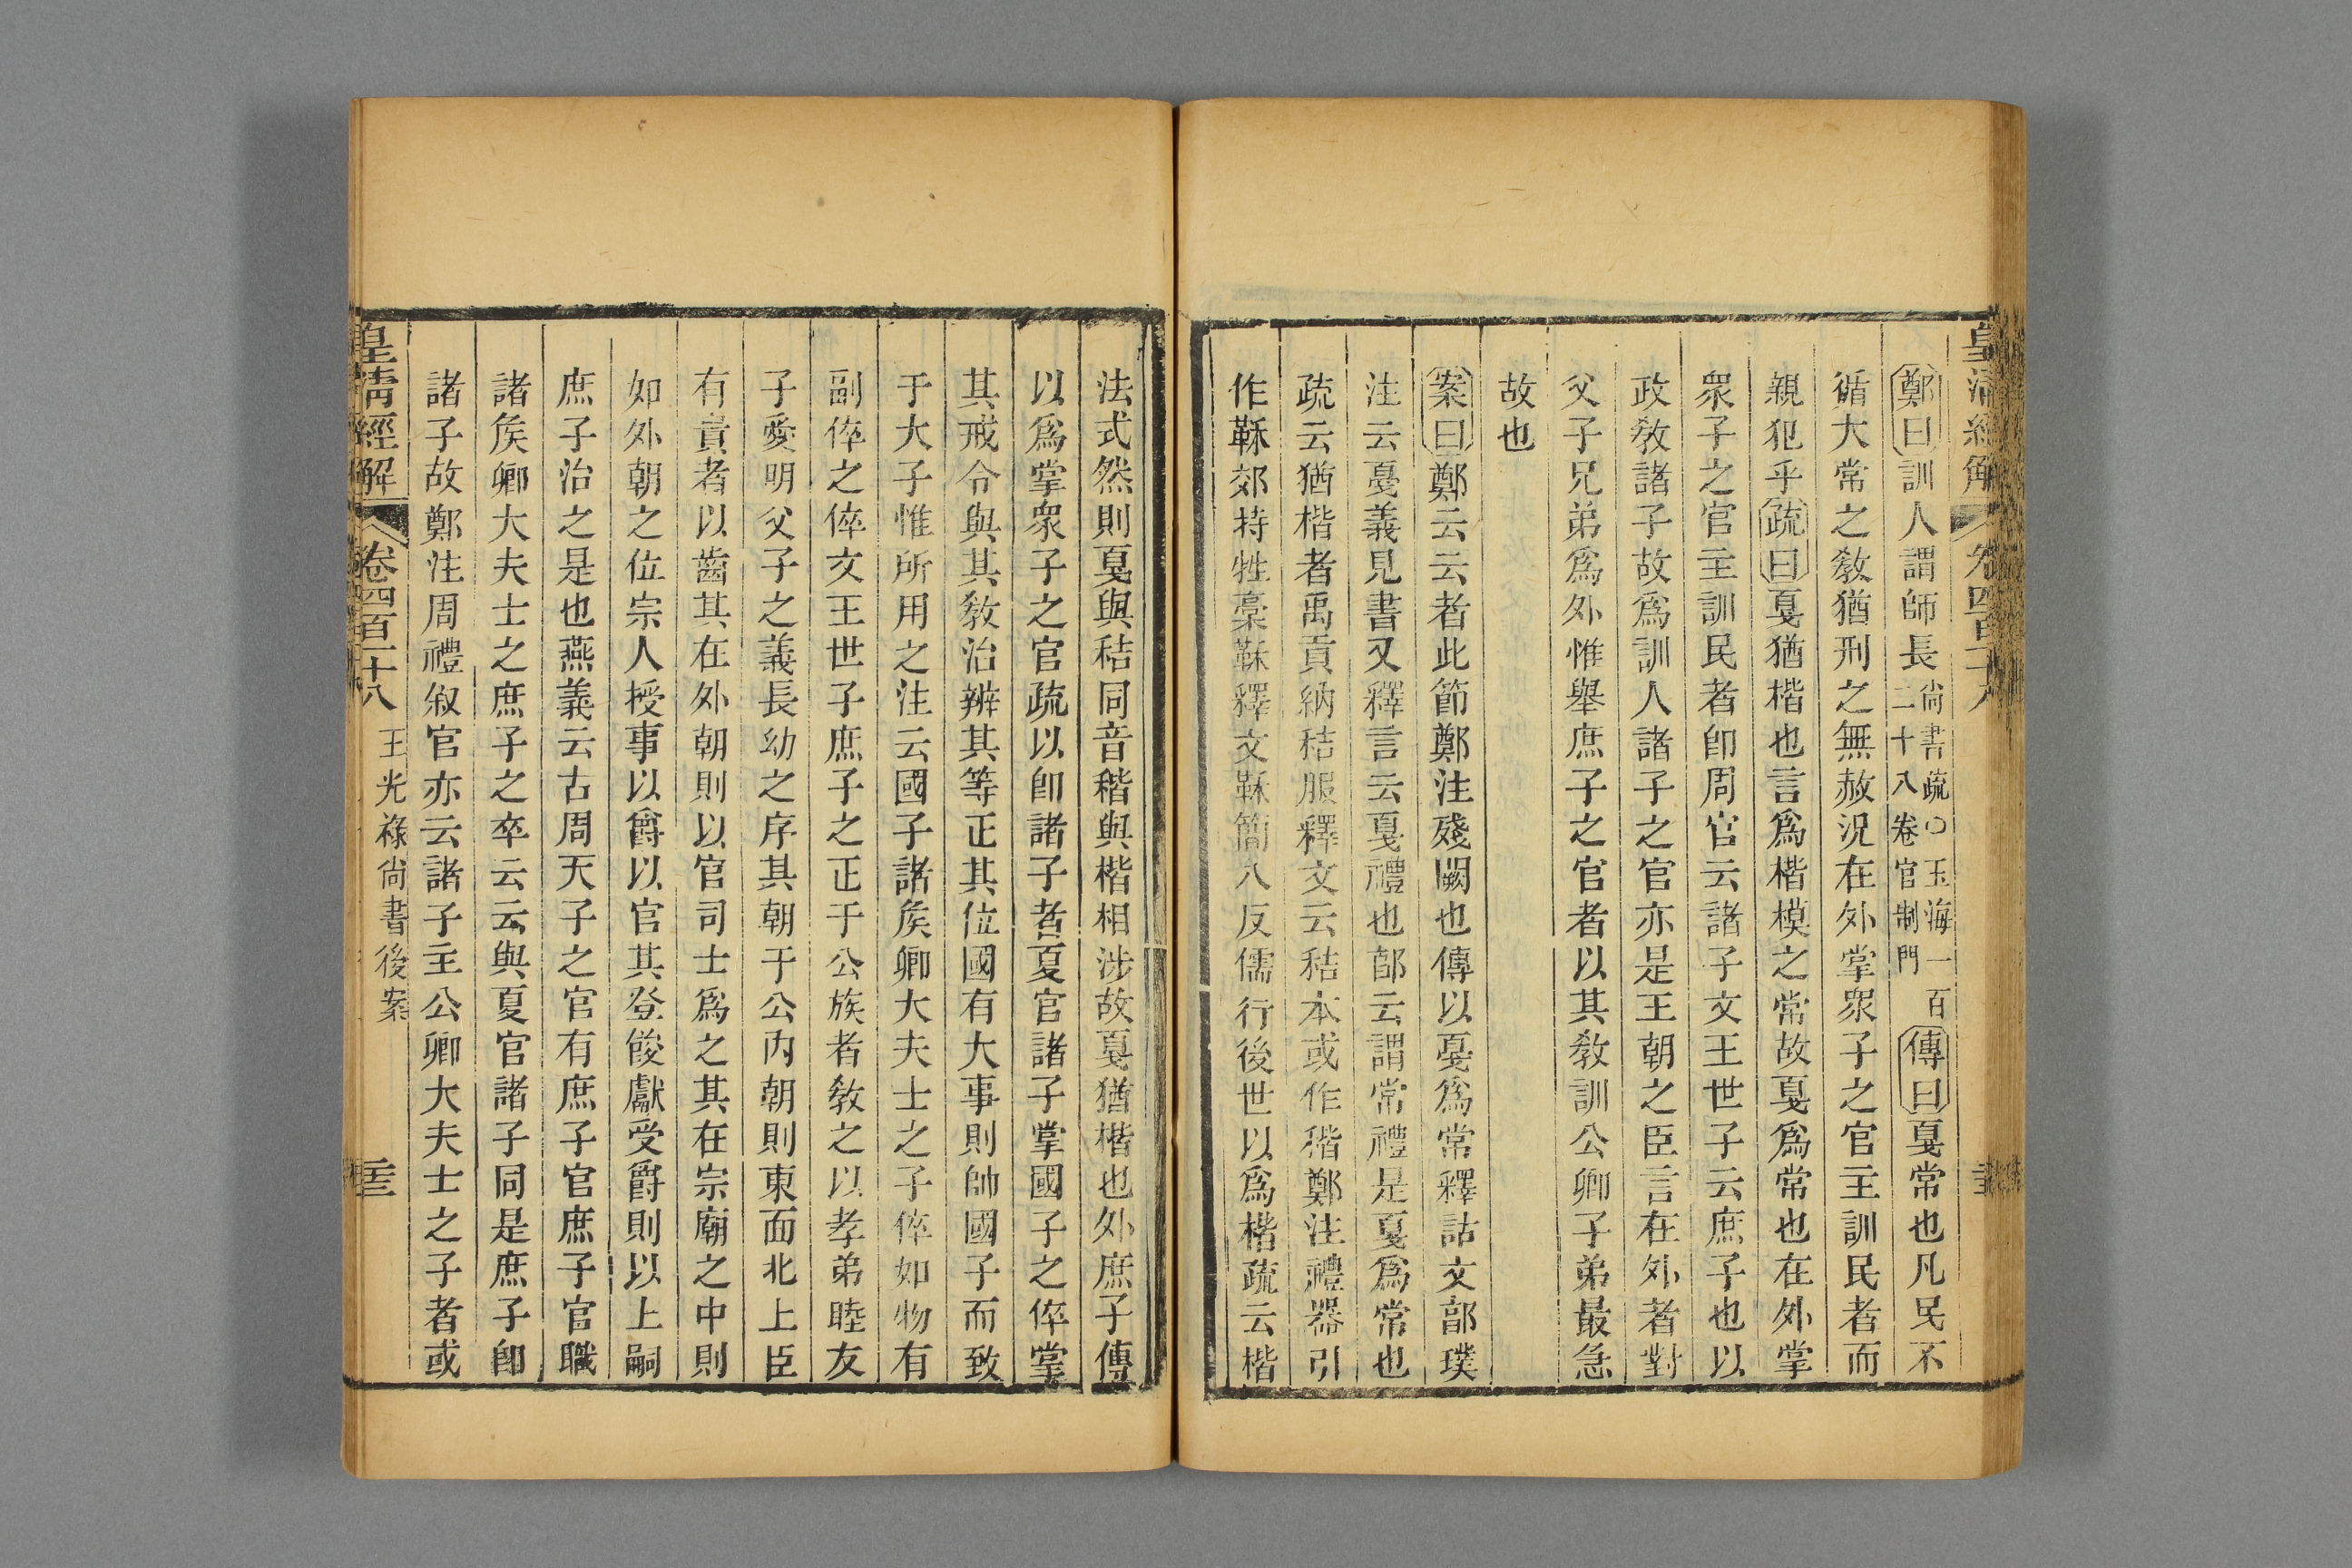 鄭曰訓人謂師長尚書疏〇玉海一百二十八卷官制門傳曰戛常也凡民不
循大常之敎猶刑之無赦況在外掌衆子之官主訓民者而
親犯乎疏曰戛猶楷也言爲楷模之常故戛爲常也在外掌
衆子之官主訓民者卽周官云諸子文王世子云庶子也以
政敎諸子故爲訓人諸子之官亦是王朝之臣言在外者對
父子兄弟爲外惟舉庶子之官者以其敎訓公卿子弟最急
故也
案曰鄭云云者此節鄭注殘闕也傳以戛爲常釋詁文郭璞
注云戛義見書又釋言云戛禮也郭云謂常禮是戛爲常也
疏云猶楷者禹貢納秸服釋文云秸本或作稭鄭注禮器引
作鞂郊特牲稾鞂釋文鞂簡八反儒行後世以爲楷疏云楷
法式然則戛與秸同音稭與楷相涉故戛猶楷也外庶子傳
以爲掌衆子之官疏以卽諸子者夏官諸子掌國子之倅掌
其戒令與其敎治辨其等正其位國有大事則帥國子而致
于大子惟所用之注云國子諸矦卿大夫士之子倅如物有
副倅之倅文王世子庶子之正于公族者敎之以孝弟睦友
子愛明父子之義長幼之序其朝于公內朝則東面北上臣
有貴者以齒其在外朝則以官司士爲之其在宗廟之中則
如外朝之位宗人授事以爵以官其登餕獻受爵則以上嗣
庶子治之是也燕義云古周天子之官有庶子官庶子官職
諸矦卿大夫士之庶子之卒云云與夏官諸子同是庶子卽
諸子故鄭注周禮叙官亦云諸子主公卿大夫士之子者或
皇淸經解 卷四百二十八 王光祿尚書後案